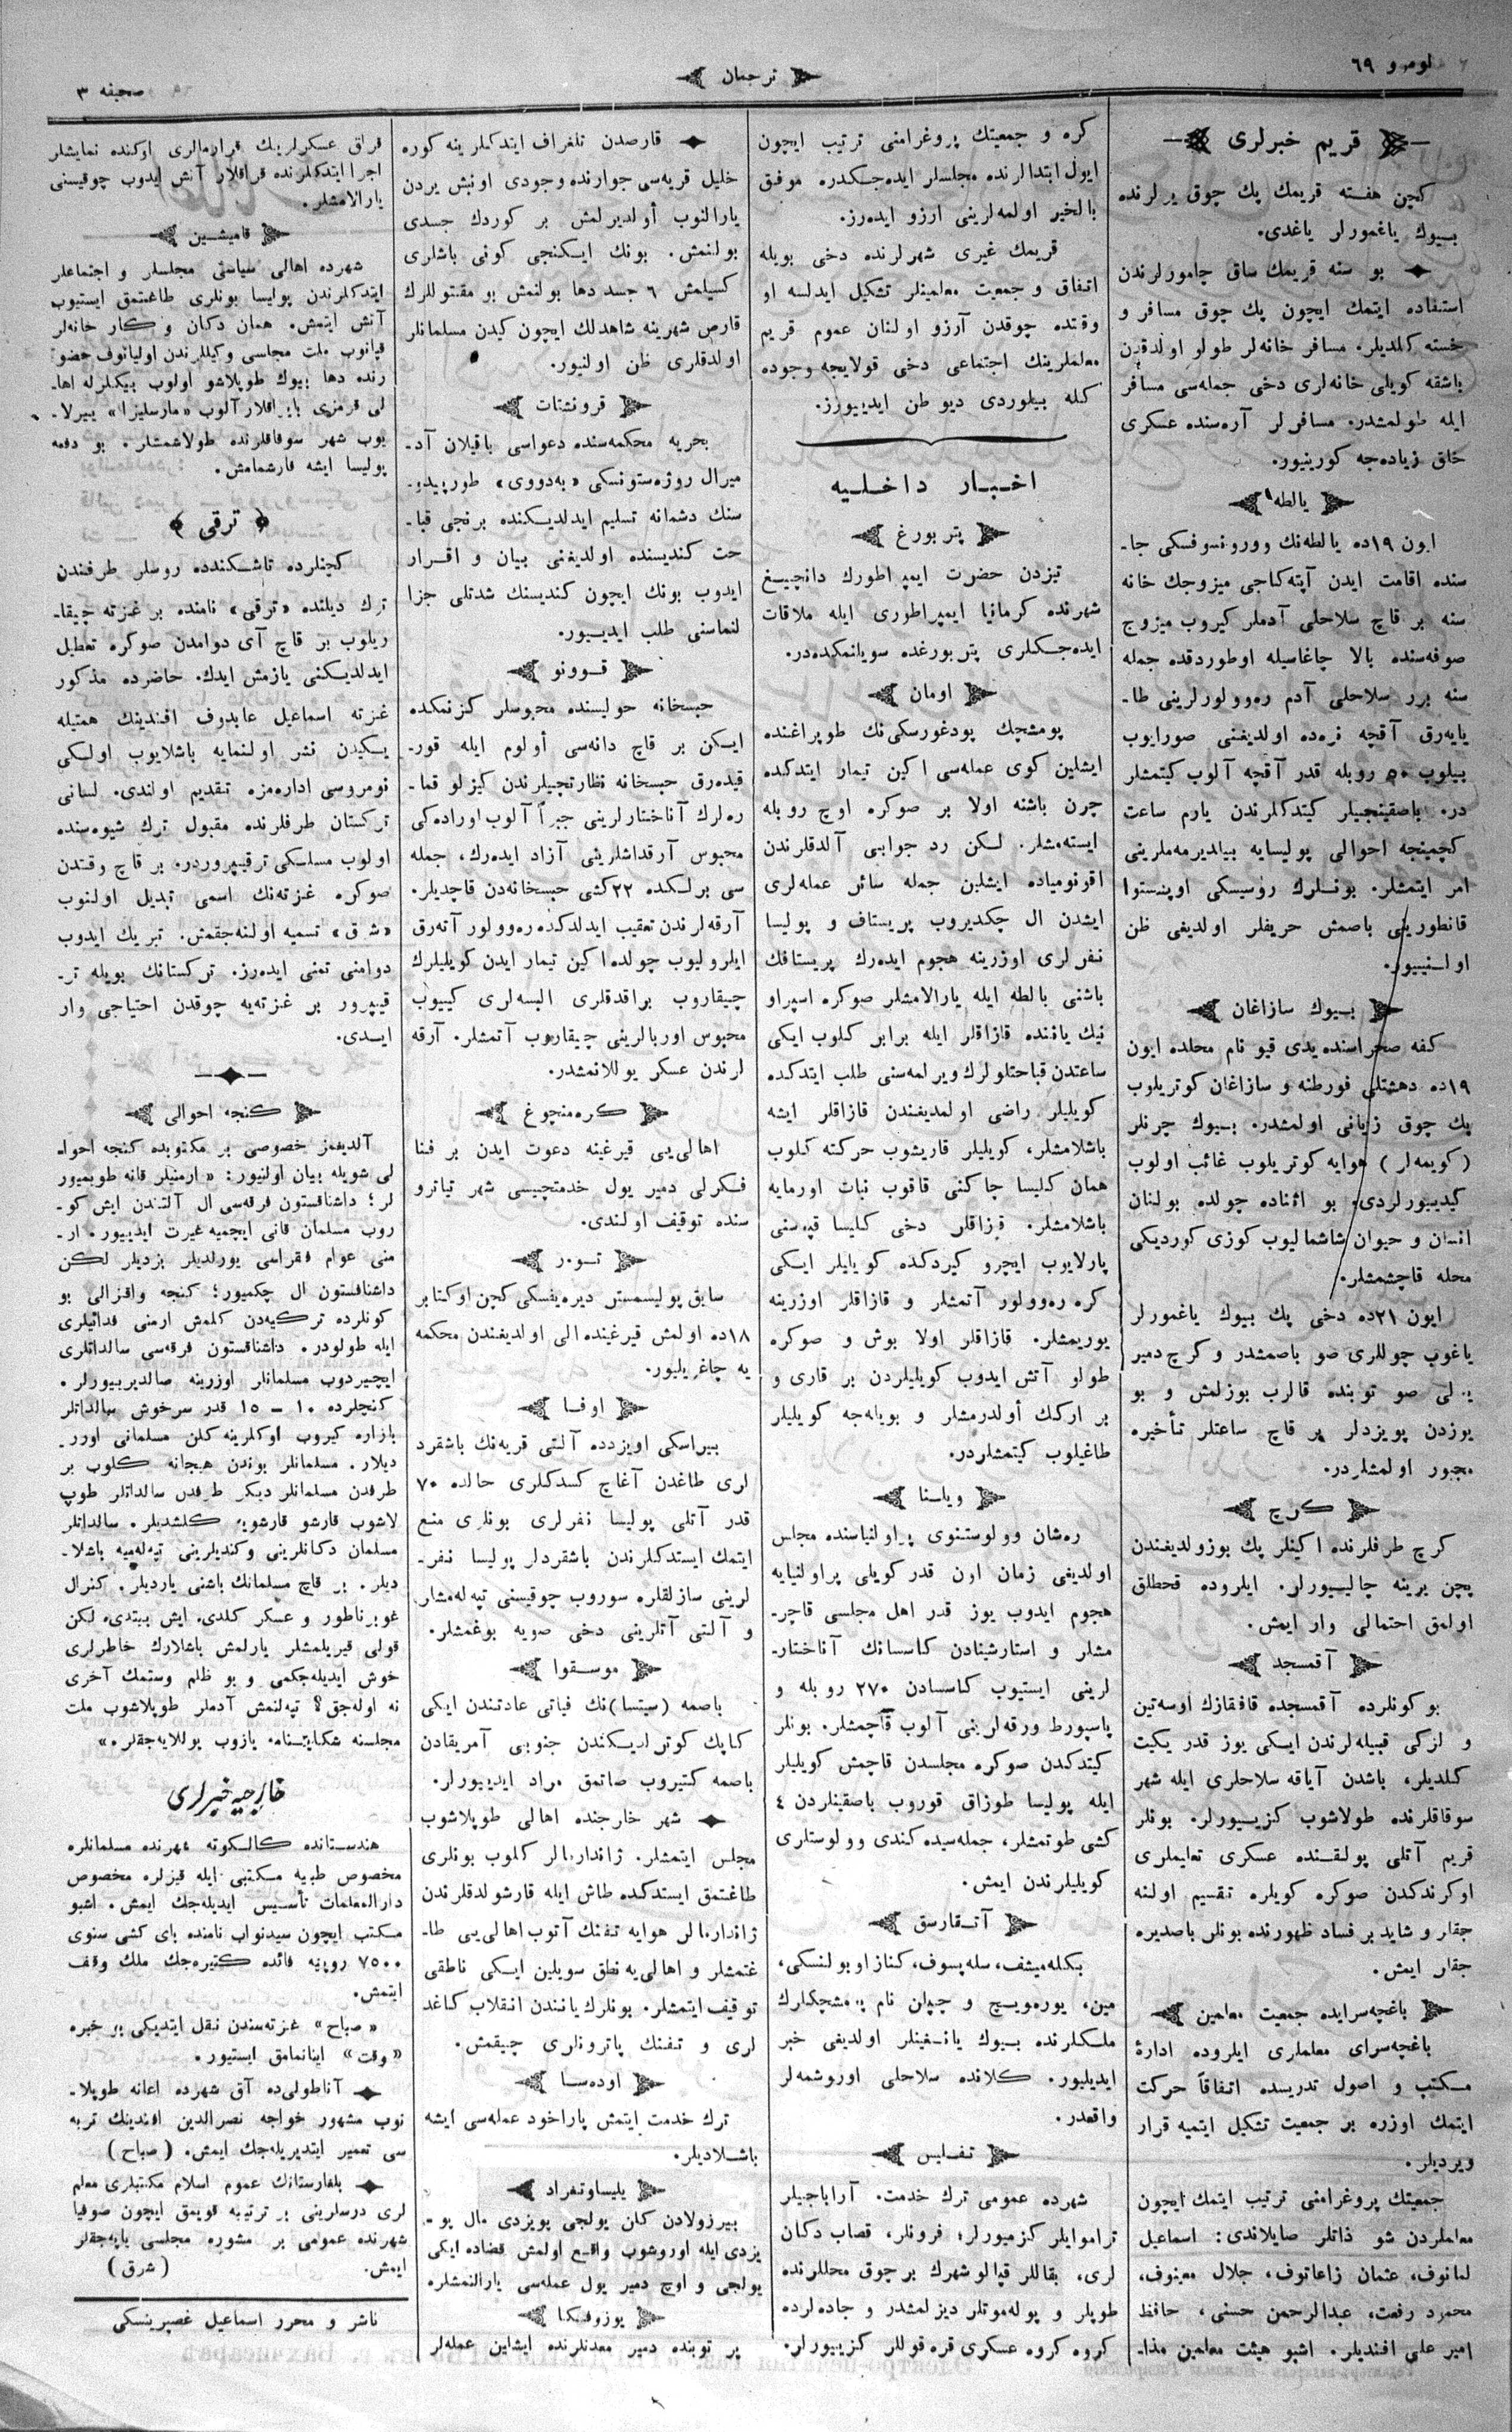 نومرو ٦٩
ترجمان
صحیفه ٣
قریم خبرلری
کچن هفته قریمك پك چوق یرلرنده
بیوك یاغمورلر یاغدی.
بو سنه قریمك ساق چامورلرندن
استفاده ایتمك ایچون پك چوق مسافر و
خسته کلدیلر. مسافر خانه‌لر طولو اولدقدن
باشقه کویلی خانه‌لری دخی جمله‌سی مسافر
ایله طولمشدر. مسافرلر آره‌سنده عسکری
خلق زیاده‌جه کورینیور.
یالطه
ایون ١٩ده یالطه‌نك وورونسوفسکی جا-
سنده اقامت ایدن آپته‌کاجی میزوجك خانه
سنه بر قاچ سلاحلی آدملر کیروب میزوج
صوفه‌سنده بالا چاغاسیله اوطوردقده جمله
سنه برر سلاحلی آدم ره‌وولورلرینی طا-
یایه‌رق آقچه نره‌ده اولدیغنی صورایوب
بیلوب ٥٠ روبله قدر آقچه آلوب کیتمشلر
در. باصقینجیلر کیتدکلرندن یارم ساعت
کچمینجه احوالی پولیسایه بیلدیرمه‌ملرینی
امر ایتمشلر. بونلرك روسیسکی اوپنستوا
قانطورینی باصمش حریفلر اولدیغی ظن
اولنییور.
بیوك سازاغان
کفه صحراسنده یدی قیو نام محلده ایون
١٩ده دهشتلی فورطنه و سازاغان کوتریلوب
پك چوق زیانی اولمشدر. بیوك چرنلر
(کویمه‌لر) هوایه کوتریلوب غائب اولوب
کیدییورلردی. بو اثناده چولده بولنان
انسان و حیوان شاشمالیوب کوزی کوردیکی
محله قاچشمشلر.
ایون ٢١ده دخی پك بیوك یاغمورلر
یاغوب چوللری صو باصمشدر و کرچ دمیر
یولی صو توبنده قالوب بوزلمش و بو
یوزدن پویزدلر بر قاچ ساعتلر تأخیره
مجبور اولمشلردر.
کرچ
کرچ طرفلرنده اکینلر پك بوزولدیغندن
پچن یرینه چالییورلر. ایلروده قحطلق
اولمق احتمالی وار ایمش.
آقمسجد
بو کونلرده آقمسجده قافقازك اوسه‌تین
و لزکی قبیله‌لرندن ایکی یوز قدر یکیت
کلدیلر، باشدن آیاقه سلاحلری ایله شهر
سوقاقلرنده طولاشوب کزییورلر. بونلر
قریم آتلی پولقنده عسکری تعلیملری
اوکرندکدن صوکره کویلره تقسیم اولنه
جقلر و شاید بر فساد ظهورنده بونلر باصدیره
جقلر ایمش.
باغچه‌سرایده جمعیت معلمین
باغچه‌سرای معلملری ایلروده ادارهٔ
مکتب و اصول تدریسده اتفاقاً حرکت
ایتمك اوزره بر جمعیت تشکیل ایتمیه قرار
ویردیلر.
جمعیتك پروغرامنی ترتیب ایتمك ایچون
معلملردن شو ذاتلر صایلاندی: اسماعیل
لمانوف، عثمان زاعاتوف، جلال معینوف،
محمود رفعت، عبدالرحمن حسنی، حافظ
امیر علی افندیلر. اشبو هیئت معلمین مذا-
کره و جمعیتك پروغرامنی ترتیب ایچون
ایول ابتدالرنده مجلسلر ایده‌جکدره موفق
بالخیر اولمه‌لرینی ارزو ایده‌رز.
قریمك غیری شهرلرنده دخی بویله
اتفاق و جمعیت معلمینلر تشکیل ایدلسه او
وقتده چوقدن آرزو اولنان عموم قریم
معلملرینك اجتماعی دخی قولایجه وجوده
کله بیلوردی دیو ظن ایدییورز.
اخبار داخلیه
پتربورغ
تیزدن حضرت ایمپراطورك دانچیغ
شهرنده کرمانیا ایمپراطوری ایله ملاقات
ایده‌جکلری پتربورغده سویلنمکده‌در.
اومان
پومشچك پودغورسکی‌نك طوپراغنده
ایشلین کوی عمله‌سی اکین تیمار ایتدکده
چرن باشنه اولا بر صوکره اوچ روبله
ایسته‌مشلر. لکن رد جوابی آلدقلرندن
اقونومیاده ایشلین جمله سائر عمله‌لری
ایشدن ال چکدیروب پریستاف و پولیسا
نفرلری اوزرینه هجوم ایده‌رك پریستافك
باشنی بالطه ایله یارالامشلر صوکره اسپراو
نیك یاننده قازاقلر ایله برابر کلوب ایکی
ساعتدن قباحتلولرك ویرلمه‌سنی طلب ایتدکده
کویلیلر راضی اولمدیغندن قازاقلر ایشه
باشلامشلر، کویلیلر قاریشوب حرکته کلوب
همان کلیسا چاکنی قاقوب نبات اورمایه
باشلامشلر. قزاقلر دخی کلیسا قپوسنی
پارلایوب ایچرو کیردکده کویلیلر ایکی
کره ره‌وولور آتمشلر و قازاقلر اوزرینه
یوریمشلر. قازاقلر اولا بوش و صوکره
طولو آتش ایدوب کویلیلردن بر قاری و
بر ارکك أولدرمشلر و بویله‌جه کویلیلر
طاغیلوب کیتمشلردر.
ویلنا
ره‌شان وولوستنوی پراولنیاسنده مجلس
اولدیغی زمان اون قدر کویلی پراولنیایه
هجوم ایدوب یوز قدر اهل مجلسی قاچر-
مشلر و استارشینادن کاسسانك آناختار-
لرینی ایستیوب کاسسادن ٢٧٠ روبله و
پاسپورط ورقه‌لرینی آلوب قاچمشلر. بونلر
کیتدکدن صوکره مجلسدن قاچمش کویلیلر
ایله پولیسا طوزاق قوروب باصقینلردن ٤
کشی طوتمشلر، جمله‌سیده کندی وولوستلری
کویلیلرندن ایمش.
آتقارسق
بکله‌میشف، سله‌پسوف، کناز اوبولنسکی،
مین، یوره‌ویچ و چپلن نام پومشچکلرك
ملکلرنده بیوك یانغینلر اولدیغی خبر
ایدیلیور. کلانده سلاحلی اوروشمه‌لر
واقعدر.
تفلیس
شهرده عمومی ترك خدمت. آراباجیلر
تراموایلر کزمیورلر؛ فرونلر، قصاب دکان
لری، بقاللر قپالو شهرك بر چوق محللرنده
طوپلر و پوله‌موتلر دیزلمشدر و جاده‌لرده
کروه کروه عسکری قره قوللر کزییورلر.
قارصدن تلغراف ایتدکلرینه کوره
خلیل قریه‌سی جوارنده وجودی اونبش یردن
یارالنوب أولدیرلمش بر کوردك جسدی
بولنمش. بونك ایکنجی کونی باشلری
کسیلمش ٦ جسد دها بولنمش بو مقتوللرك
قارص شهرینه شاهدلك ایچون کیدن مسلمانلر
اولدقلری ظن اولنیور.
قرونشتات
بحریه محکمه‌سنده دعواسی باقیلان آد-
میرال روژه‌ستونسکی «به‌دووی» طورپیدو-
سنك دشمانه تسلیم ایدلدیکنده برنجی قبا-
حت کندیسنده اولدیغنی بیان و اقرار
ایدوب بونك ایچون کندیسنك شدتلی جزا
لنماسنی طلب ایدییور.
قوونو
حبسخانه حولیسنده محبوسلر کزنمکده
ایکن بر قاچ دانه‌سی أولوم ایله قور-
قیده‌رق حبسخانه نظارتچیلرندن کیزلو قما-
ره‌لرك آناختارلرینی جبراً آلوب اوراده‌کی
محبوس آرقداشلرینی آزاد ایده‌رك، جمله
سی برلکده ٢٢ کشی حبسخانه‌دن قاچدیلر.
آرقه‌لرندن تعقیب ایدلدکده ره‌وولور آته‌رق
ایلرولیوب چولده اکین تیمار ایدن کویلیلرك
چیقاروب براقدقلری البسه‌لری کییوب
محبوس اوربالرینی چیقاروب آتمشلر. آرقه
لرندن عسکر یوللانمشدر.
کره‌منچوغ
اهالی‌یی قیرغینه دعوت ایدن بر فنا
فکرلی دمیر یول خدمتچیسی شهر تیاترو
سنده توقیف اولندی.
تویر
سابق پولیسمستر دیره‌یفسکی کچن اوکتابر
١٨ده اولمش قیرغینده الی اولدیغندن محکمه
یه چاغریلیور.
اوفا
بیراسکی اویزدده آلتی قریه‌نك باشقرد
لری طاغدن آغاچ کسدکلری حالده ٧٠
قدر آتلی پولیسا نفرلری بونلری منع
ایتمك ایستدکلرندن باشقردلر پولیسا نفر-
لرینی سازلقلره سوروب چوقیسنی تپه‌له‌مشلر
و آلتی آتلرینی دخی صویه بوغمشلر.
موسقوا
باصمه (سیتسا)نك فیاتی عادتندن ایکی
کاپك کوترلدیکندن جنوبی آمریقادن
باصمه کتیروب صاتمق مراد ایدییورلر.
شهر خارجنده اهالی طوپلاشوب
مجلس ایتمشلر. ژاندارمالر کلوب بونلری
طاغتمق ایستدکده طاش ایله قارشولدقلرندن
ژاندارمالر هوایه تفنك آتوب اهالی‌یی طا-
غتمشلر و اهالی‌یه نطق سویلین ایکی ناطقی
توقیف ایتمشلر. بونلرك یانندن انقلاب کاغد
لری و تفنك پاترونلری چیقمش.
اوده‌سا
ترك خدمت ایتمش پاراخود عمله‌سی ایشه
باشلادیلر.
یلیساوتغراد
بیرزولادن کلن یولجی پویزدی مال پو-
یزدی ایله اوروشوب واقع اولمش قضاده ایکی
یولجی و اوچ دمیر یول عمله‌سی یارالنمشلر.
یوزوفکا
یر توبنده دمیر معدنلرنده ایشلین عمله‌لر
قزاق عسکرلرینك قرارمالری اوکنده نمایشلر
اجرا ایتدکلرنده قزاقلار آتش ایدوب چوقیسنی
یارالامشلر.
قامیشین
شهرده اهالی سیاسی مجلسلر و اجتماعلر
ایتدکلرندن پولیسا بونلری طاغتمق ایستیوب
آتش ایتمش. همان دکان و کار خانه‌لر
قپانوب ملت مجلسی وکیللرندن اولیانوف حضو
رنده دها بیوك طوپلاشو اولوب بیکلرله اها-
لی قرمزی بایراقلار آلوب «مارسلیزا» ییرلا-
یوب شهر سوقاقلرنده طولاشمشلر. بو دفعه
پولیسا ایشه قارشمامش.
ترقی
کچنلرده تاشکندده روسلر طرفندن
ترك دیلنده «ترقی» نامنده بر غزته چیقا-
ریلوب بر قاچ آی دوامدن صوکره تعطیل
ایدلدیکنی یازمش ایدك. حاضرده مذکور
غزته اسماعیل عابدوف افندینك همتیله
یکیدن نشر اولنمایه باشلایوب اولکی
نومروسی اداره‌مزه تقدیم اولندی. لسانی
ترکستان طرفلرنده مقبول ترك شیوه‌سنده
اولوب مسلکی ترقیپروردر. بر قاچ وقتدن
صوکره غزته‌نك اسمی تبدیل اولنوب
«شرق» تسمیه اولنه‌جقمش. تبریك ایدوب
دوامنی تمنی ایده‌رز. ترکستانك بویله تر-
قیپرور بر غزته‌یه چوقدن احتیاجی وار
ایدی.
کنجه احوالی
آلدیغمز خصوصی بر مکتوبده کنجه احوا-
لی شویله بیان اولنیور: «ارمنیلر قانه طویمیور
لر؛ داشناقستون فرقه‌سی ال آلتندن ایش کو-
روب مسلمان قانی ایچمیه غیرت ایدییور. ار-
منی عوام فقراسی یورلدیلر بزدیلر لکن
داشناقستون ال چکمیور؛ کنجه واقزالی بو
کونلرده ترکیه‌دن کلمش ارمنی فدائیلری
ایله طولودر. داشناقستون فرقه‌سی سالداتلری
ایچیردوب مسلمانلر اوزرینه صالدیرییورلر.
کنچلرده ١٠ – ١٥ قدر سرخوش سالداتلر
بازاره کیروب اوکلرینه کلن مسلمانی اورر-
دیلار. مسلمانلر بوندن هیجانه کلوب بر
طرفدن مسلمانلر دیکر طرفدن سالداتلر طوپ
لاشوب قارشو قارشویه کلشدیلر. سالداتلر
مسلمان دکانلرینی وکندیلرینی تپه‌له‌میه باشلا-
دیلر. بر قاچ مسلمانك باشنی یاردیلر. کنرال
غوبرناطور و عسکر کلدی. ایش بیتدی. لکن
قولی قیریلمشلر یارلمش باشلارك خاطرلری
خوش ایدیله‌جکمی و بو ظلم وستمك آخری
نه اوله‌جق؟ تپه‌لنمش آدملر طوپلاشوب ملت
مجلسنه شکایتنامه یازوب یوللایه‌جقلر.»
خارجیه خبرلری
هندستانده کالکوته شهرنده مسلمانلره
مخصوص طبیه مکتبی ایله قیزلره مخصوص
دارالمعلمات تأسیس ایدیله‌جك ایمش. اشبو
مکتب ایچون سیدنواب نامنده بای کشی سنوی
٧٥٠٠ روپیه فائده کتیره‌جك ملك وقف
ایتمش.
«صباح» غزته‌سندن نقل ایتدیکی بر خبره
«وقت» اینانمامق ایستیور.
آناطولی‌ده آق شهرده اعانه طوپلا-
نوب مشهور خواجه نصرالدین افندینك تربه
سی تعمیر ایتدیریله‌جك ایمش. (صباح)
بلغارستانك عموم اسلام مکتبلری معلم
لری درسلرینی بر ترتیبه قویمق ایچون صوفیا
شهرنده عمومی بر مشوره مجلسی یاپه‌جقلر
ایمش. (شرق)
ناشر و محرر اسماعیل غصپرینسکی